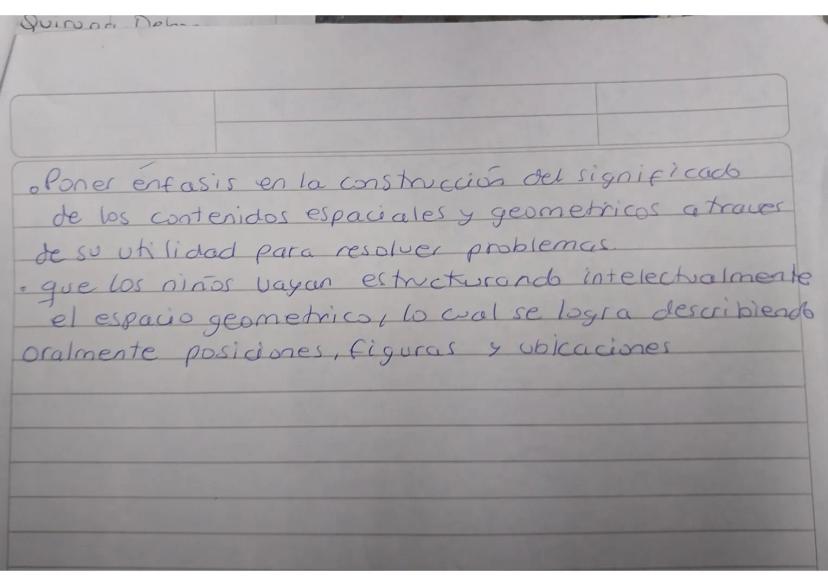 • Poner énfasis en la construcción del significado
de los contenidos espaciales y geometricos a traves
de su utilidad para resolver problemas.
• que los niños vayan estructurando intelectualmente
el espacio geometrico, lo cual se logra describiendo
oralmente posiciones, figuras y ubicaciones